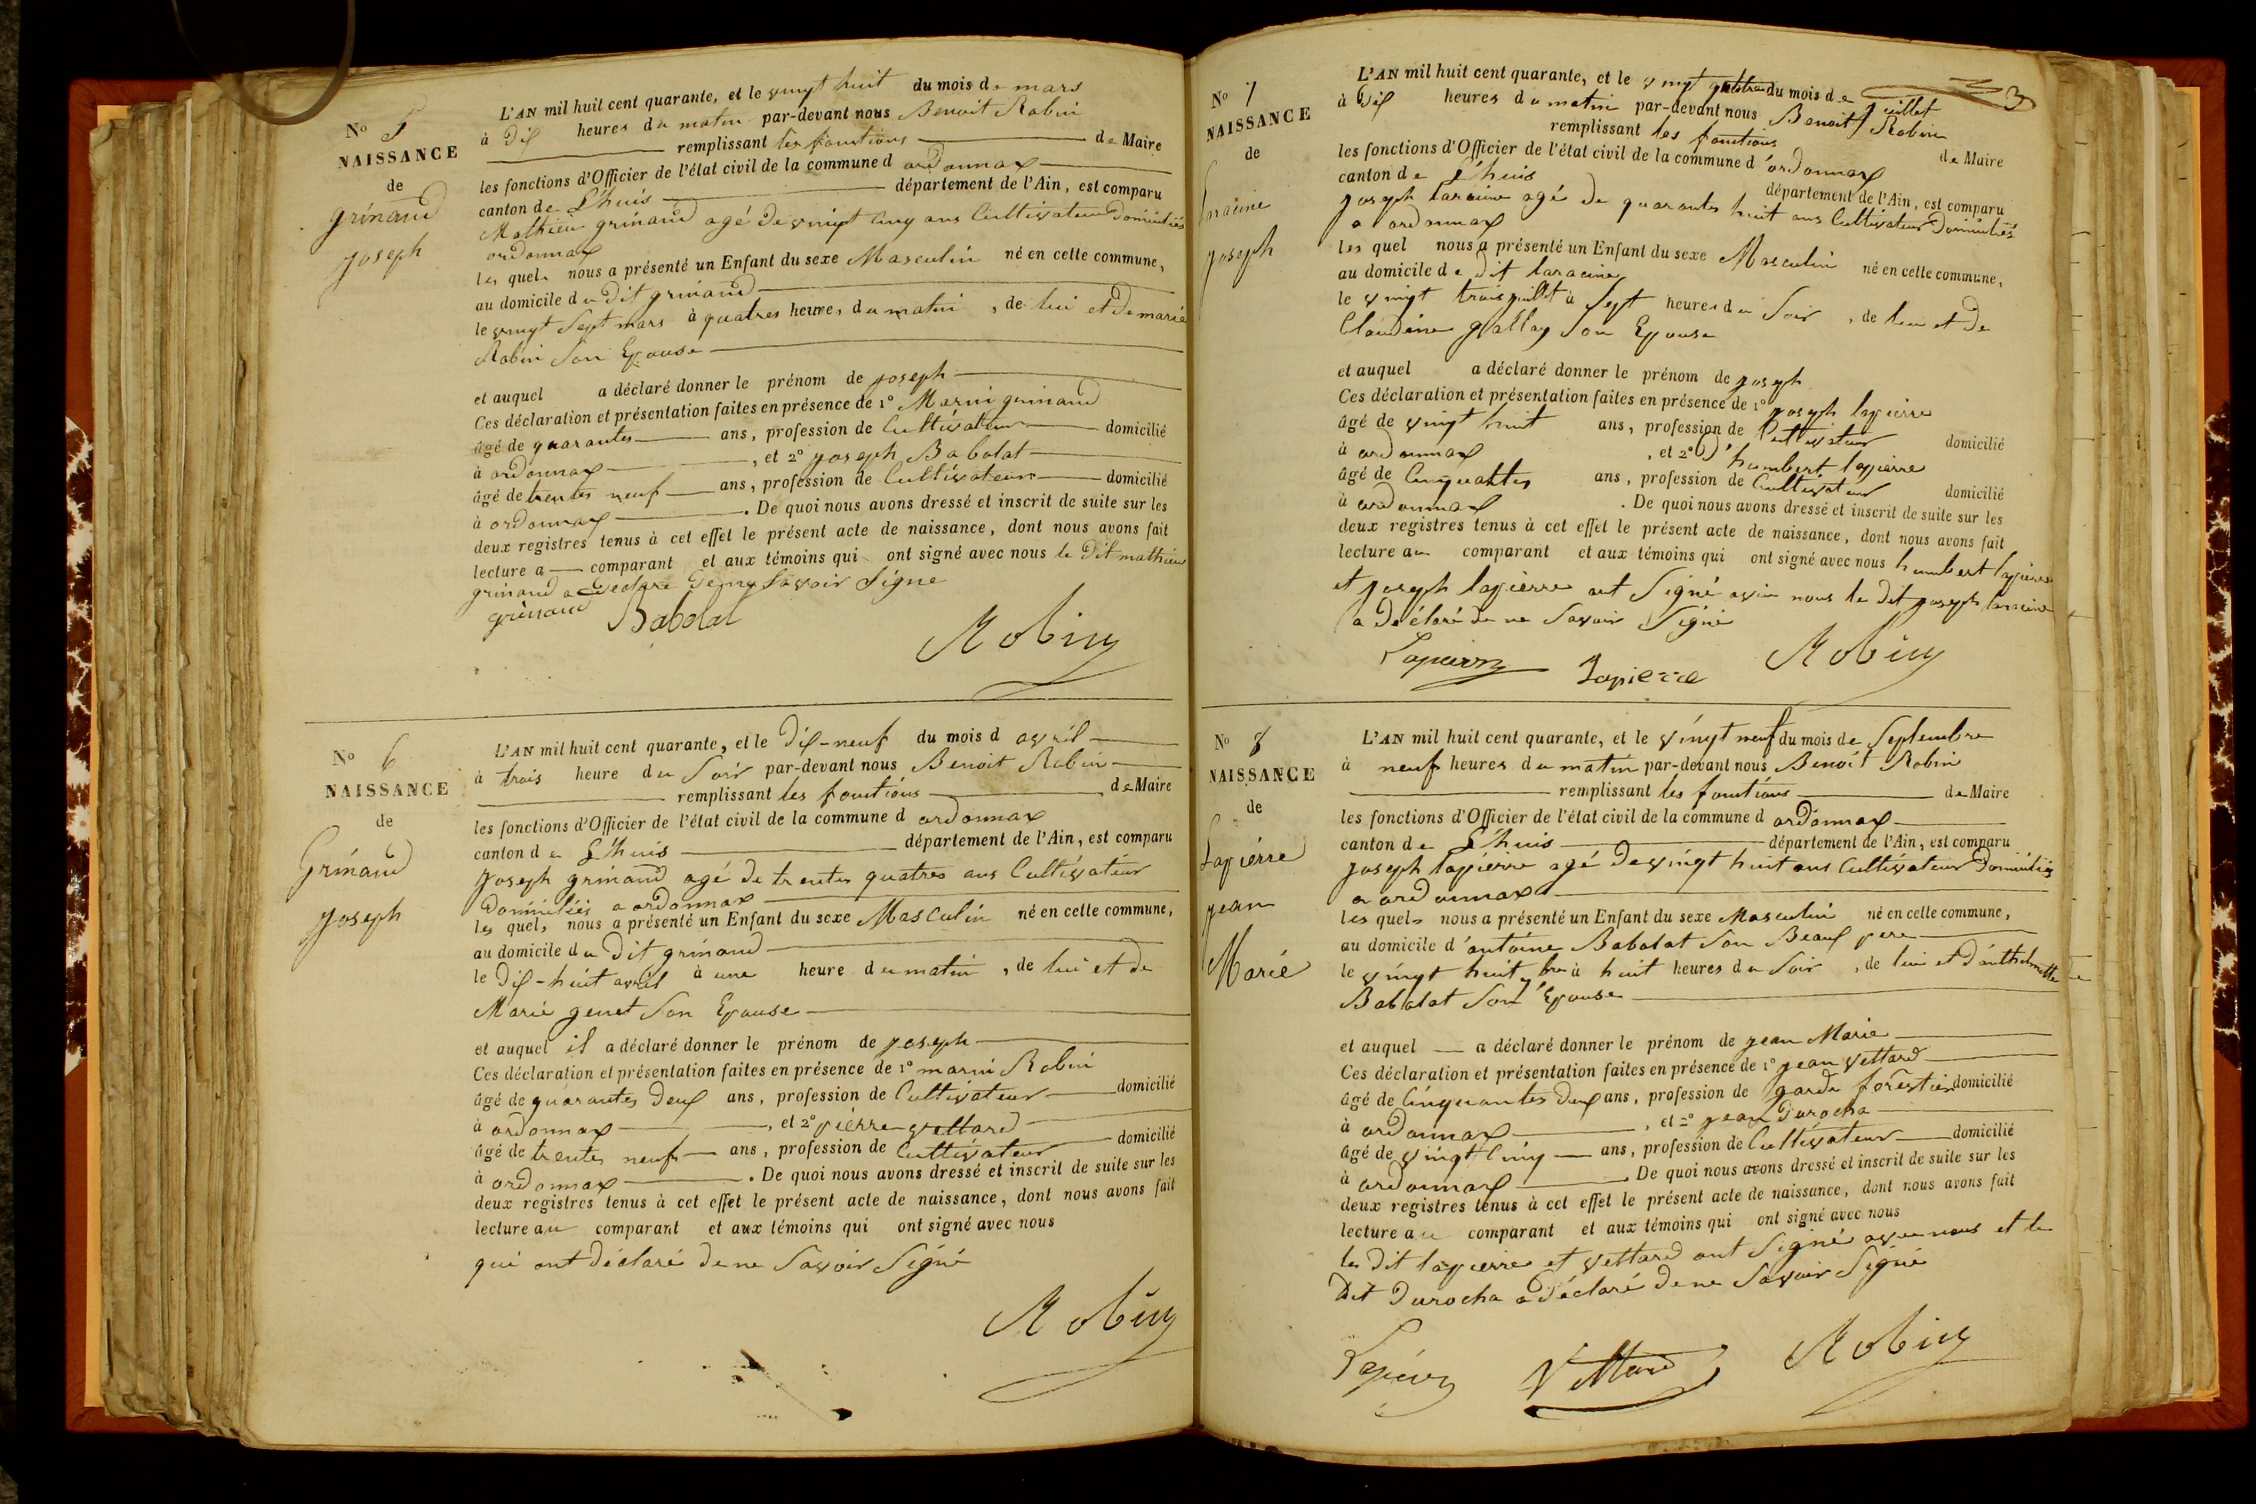 N° 5
NAISSANCE
de
grinand
joseph
L'AN mil huit cent quarante, et le vingt huit du mois de mars
à dix heures du matin par-devant nous Benoit Robin
remplissant les fonctions de Maire
les fonctions d'Officier de l'état civil de la commune d ordonnax
canton de L'huis département de l'Ain, est comparu
Mathieu grinand agé de vingt cinq ans Cultivateur Domicilies
ordonnax
les quel nous a présenté un Enfant du sexe Masculin né en cette commune,
au domicile du Dit grinand
le vingt Sept mars à quatres heures du matin, de lui et De marie
Robin Son Epouse
et auquel a déclaré donner le prénom de joseph
Ces déclaration et présentation faites en présence de 1° Marin grinand
âgé de quarantes ans, profession de Cultivateur domicilié
à ordonnax, et 2° joseph Babolat
âgé de trentes neuf ans, profession de Cultivateur domicilié
à ordonnax. De quoi nous avons dressé et inscrit de suite sur les
deux registres tenus à cet effet le présent acte de naissance, dont nous avons fait
lecture a comparant et aux témoins qui ont signé avec nous le Dit mathieu
grinand a Declare De ny Savoir Signe
grinand Babolat
Robin
N° 6
NAISSANCE
de
Grinand
joseph
L'AN mil huit cent quarante, et le Dix-neuf du mois d avril
à trois heure du Soir par-devant nous Benoit Robin
remplissant les fonctions de Maire
les fonctions d'Officier de l'état civil de la commune d ordonnax
canton de L'huis département de l'Ain, est comparu
joseph grinand agé de trentes quatres ans Cultivateur
Domicilies a ordonnax
les quel, nous a présenté un Enfant du sexe Masculin né en cette commune,
au domicile du Dit grinand
le Dix-huit avril à une heure du matin, de lui et de
Marie genet Son Epouse
et auquel il a déclaré donner le prénom de joseph
Ces déclaration et présentation faites en présence de 1° marin Robin
âgé de quarantes Deux ans, profession de Cultivateur domicilié
à ordonnax, et 2° pierre vettard
âgé de trentes neuf ans, profession de Cultivateur domicilié
à ordonnax. De quoi nous avons dressé et inscrit de suite sur les
deux registres tenus à cet effet le présent acte de naissance, dont nous avons fait
lecture au comparant et aux témoins qui ont signé avec nous
qui ont déclaré de ne Savoir Signé
Robin
3
N° 7
NAISSANCE
de
laraine
joseph
L'AN mil huit cent quarante, et le vingt quatre du mois de juillet
à Dix heures du matin par-devant nous Benoit Robin
remplissant les fonctions de Maire
les fonctions d'Officier de l'état civil de la commune d'ordonnax
canton de L'huis département de l'Ain, est comparu
joseph laracine agé de quarantes huit ans Cultivateur Domicilies
a ordonnax
les quel nous a présenté un Enfant du sexe Masculin né en cette commune,
au domicile de Dit laracine
le vingt trois juillet à Sept heures du Soir, de lui et De
Claudine gallay Son Epouse
et auquel a déclaré donner le prénom de joseph
Ces déclaration et présentation faites en présence de 1° joseph lapierre
âgé de vingt huit ans, profession de Cultivateur domicilié
à ordonnax, et 2° D'humbert lapierre
âgé de Cinquantes ans, profession de Cultivateur domicilié
à ordonnax. De quoi nous avons dressé et inscrit de suite sur les
deux registres tenus à cet effet le présent acte de naissance, dont nous avons fait
lecture au comparant et aux témoins qui ont signé avec nous humbert lapierre
et joseph lapierre ont Signé avec nous le Dit joseph laracine
a Déclaré de ne Savoir Signé
Lapierre Lapierre Robin
N° 8
NAISSANCE
de
Lapierre
jean
Marie
L'AN mil huit cent quarante, et le vingt neuf du mois de Septembre
à neuf heures du matin par-devant nous Benoit Robin
remplissant les fonctions de Maire
les fonctions d'Officier de l'état civil de la commune d ordonnax
canton de L'huis département de l'Ain, est comparu
joseph lapierre agé de vingt huit ans Cultivateur Domicilies
a ordonnax
les quel nous a présenté un Enfant du sexe Masculin né en cette commune,
au domicile d'antoine Babolat Son Beaux pere
le vingt huit 7bre à huit heures du Soir, de lui et D'anthelmette
Babolat Son Epouse
et auquel a déclaré donner le prénom de jean Marie
Ces déclaration et présentation faites en présence de 1° jean vettard
âgé de Cinquantes Deux ans, profession de garde forestier domicilié
à ordonnax, et 2° jean Durocha
âgé de vingt Cinq ans, profession de Cultivateur domicilié
à ordonnax. De quoi nous avons dressé et inscrit de suite sur les
deux registres tenus à cet effet le présent acte de naissance, dont nous avons fait
lecture au comparant et aux témoins qui ont signé avec nous
le Dit lapierre et vettard ont Signé avec nous et le
Dit Durocha a Déclaré De ne Savoir Signé
Lapierre Vettard Robin